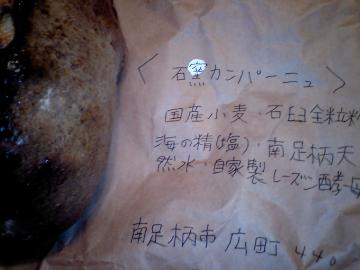 〈石窯カンパーニュ〉
国産小麦・石臼全粒粉
海の精(塩)・南足柄天
然水・自家製レーズン酵母
南足柄市 広町 440